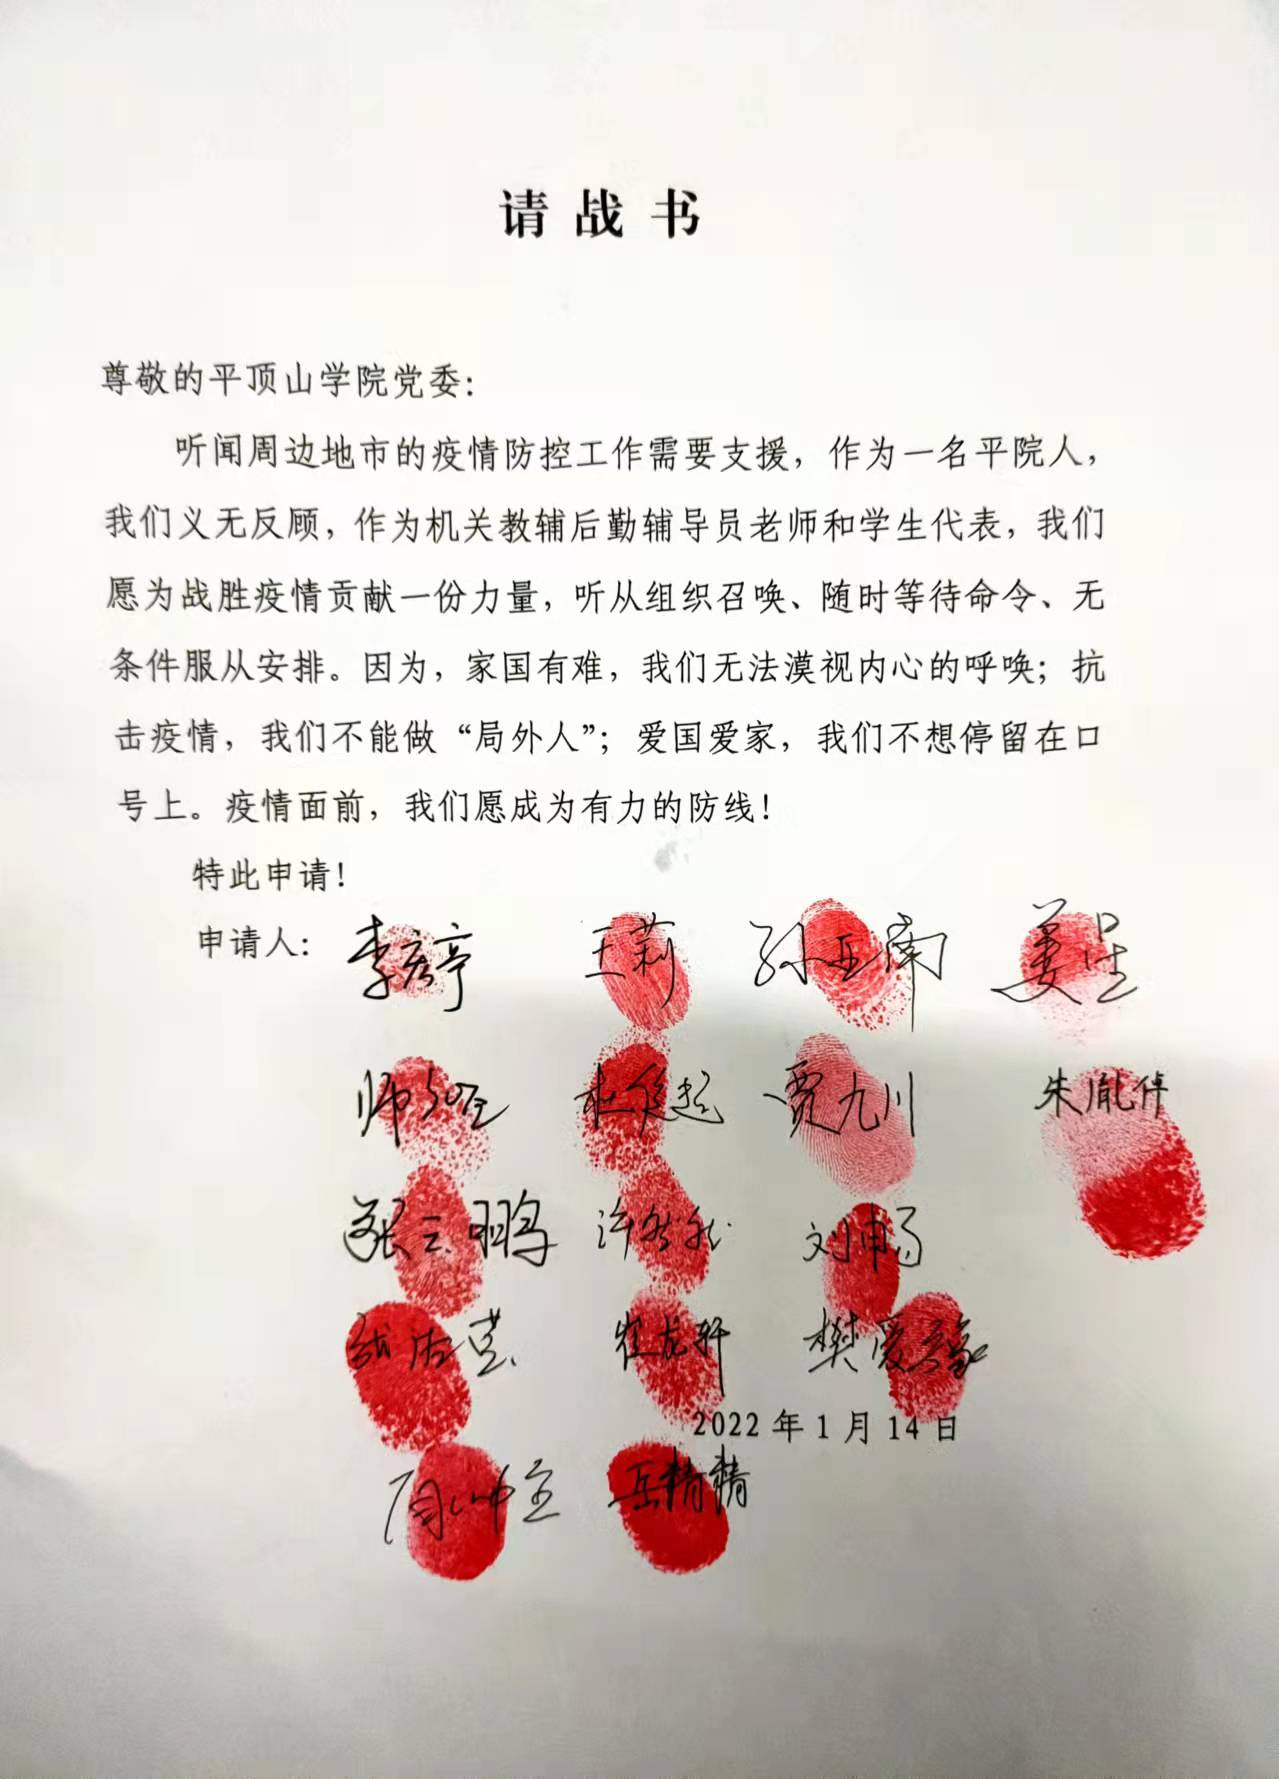 请战书
尊敬的平顶山学院党委：
听闻周边地市的疫情防控工作需要支援，作为一名平院人，
我们义无反顾，作为机关教辅后勤辅导员老师和学生代表，我们
愿为战胜疫情贡献一份力量，听从组织召唤、随时等待命令、无
条件服从安排。因为，家国有难，我们无法漠视内心的呼唤；抗
击疫情，我们不能做“局外人”；爱国爱家，我们不想停留在口
号上。疫情面前，我们愿成为有力的防线！
特此申请！
申请人： 李彦亭 王莉 孙亚南 姜星
贾九川 朱胤倬
张云鹏 刘畅
崔龙轩
2022年1月14日
岳精精